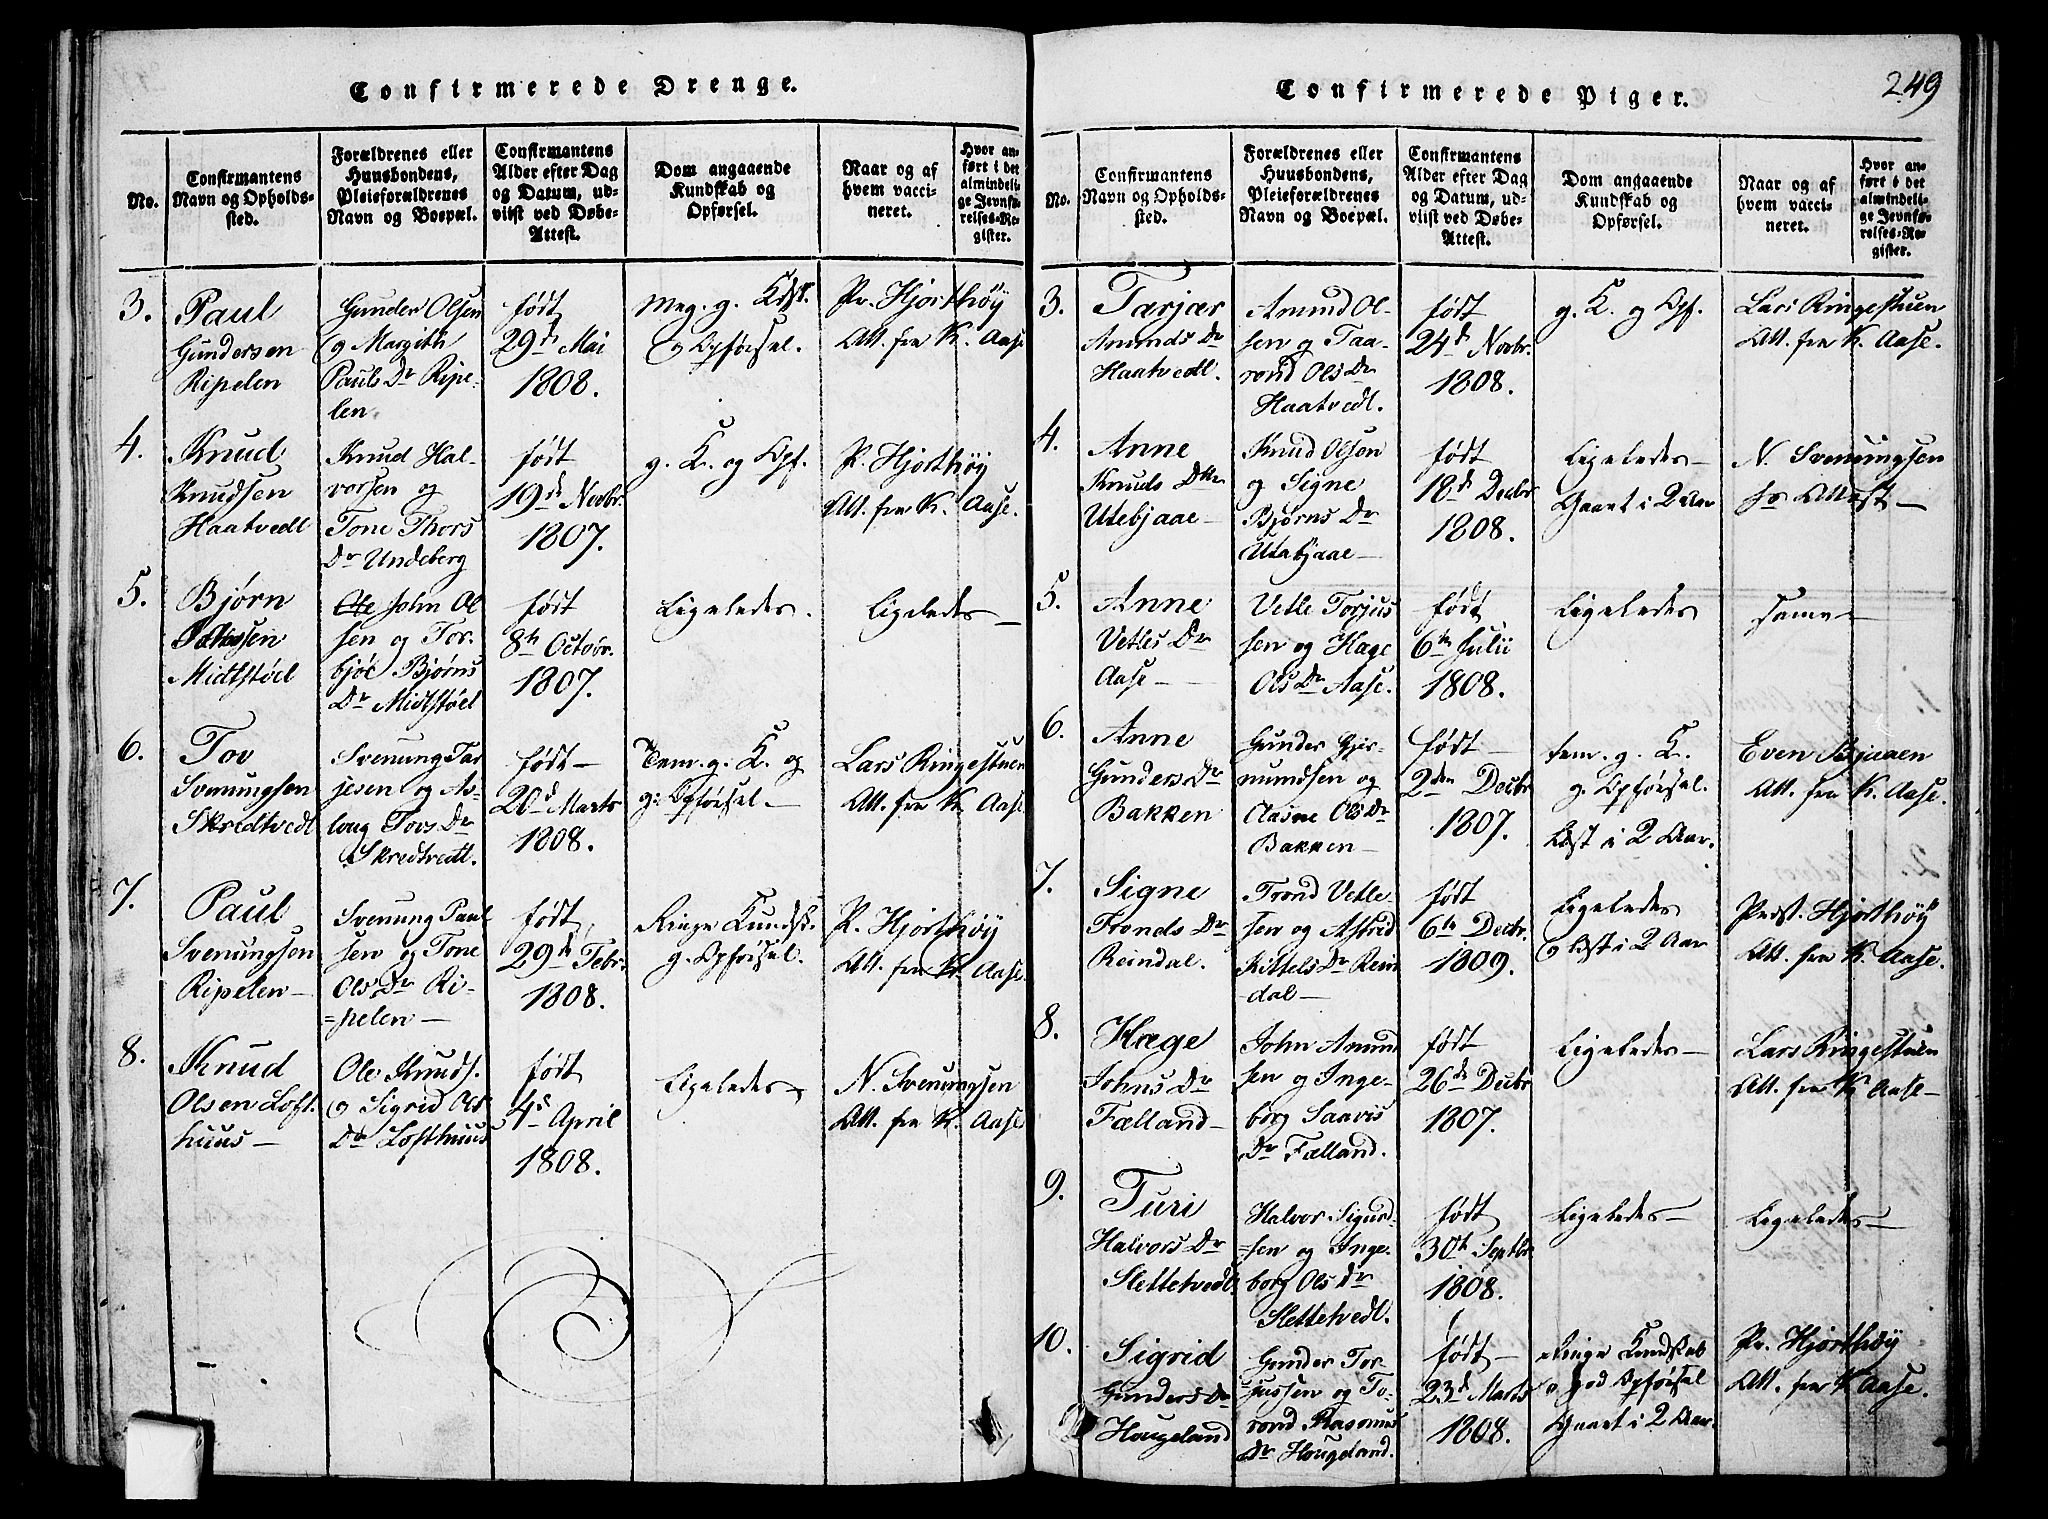 Confirmerede Drenge.
No.
Confirmantens
Navn og Opholds-
sted.
Forældrenes eller
Huusbondens,
Pleieforældrenes
Navn og Boepæl.
Confirmantens
Alder efter Dag
og Datum, ud-
viist ved Døbe-
Attest.
Dom angaaende
Kundskab og
Opførsel.
Naar og af
hvem vacci-
neret.
Hvor an-
ført i det
almindeli-
ge Jevnfø-
relses-Re-
gister.
3.
Paul
Gundersen
Ripelen
Gunder Olsen
og Margith
Pauls Dr Ripe-
len.
født
29d Mai
1808.
Meg. g. Kdsk.
og Opførsel.
Pr. Hjorthøy
Att. fra K. Aase
4.
Knud
Knudsen
Haatvedt
Knud Hal-
vorsen og
Tone Thors
Dr Undeberg
født
19d Novbr.
1807.
g. K. og Opf.
P. Hjorthøy
Att. fra K. Aase.
5.
Bjørn
Midtstøel
John Ol
sen og Tor-
bjør Bjørns
Dr Midtstøel
født
8th Octobr.
1807.
Ligeledes.
Ligeledes
6.
Tov
Svenungsen
Skredtvedt
Svenung Tar
jesen og As-
loug Tovs Dr
Skredtvedt.
født
20d Marts
1808.
Tem. g. K. og
g: Opførsel.
Lars Ringestuen
Att. fra K. Aase
7.
Paul
Svenungsen
Ripelen
Svenung Paul
sen og Tone
Ols Dr Ri-
=pelen
født
29d Febr.
1808.
Ringe Kundsk.
g. Opførsel.
P. Hjorthøy
Att. fra K. Aase.
8.
Knud
Olsen Loft-
huus
Ole Knuds.
og Sigrid Ols
Dr Lofthuus
født
4d April
1808.
Ligeledes
N. Svenungsen
Att. fra K. Aase
Confirmerede Piger.
249
No.
Confirmantens
Navn og Opholds-
sted.
Forældrenes eller
Huusbondens,
Pleieforældrenes
Navn og Boepæl.
Confirmantens
Alder efter Dag
og Datum, ud-
viist ved Døbe-
Attest.
Dom angaaende
Kundskab og
Opførsel.
Naar og af
hvem vacci-
neret.
Hvor an-
ført i det
almindeli-
ge Jevnfø-
relses-Re-
gister.
3.
Tarjær
Amunds Dr
Haatvedt.
Amund Ol-
sen og Taa-
rond Ols Dr
Haatvedt.
født
24d Novbr.
1808.
g. K. og Opf.
Lars Ringestuen
Att. fra K. Aase.
4.
Anne
Knuds Dtr
Utebjaae
Knud Olsen
og Signe
Bjørns Dr
Utebjaae
født
18d Decbr
1808.
Ligeledes
Gaaet i 2 Aar
N. Svenungsen
hs Attest
5.
Anne
Vetles Dr
Aase
Vetle Torjus
sen og Hage
Ols Dr Aase.
født
6te Julii
1808.
Ligeledes
samme
6.
Anne
Gunders Dr
Bakken
Gunder Gjer-
mundsen og
Aasne Ols Dr
Bakken
født
2den Decbr
1807.
tem. g. K.
g. Opførsel.
Læst i 2 Aar.
Even Bjaaen
Att. fra K. Aase.
7.
Signe
Tronds Dr
Reindal.
Trond Vetle
sen og Astrid
Kittels Dr Rein
dal
født
6te Decbr.
1809.
Ligeledes
o læst i 2 Aar
Prst. Hjorthøy
Att. fra K. Aase.
8.
Hæge
Johns Dr
Fælland
John Amund
sen og Inge-
borg Saavis
Dr Fælland.
født
26d Decbr
1807.
Ligeledes
Lars Ringestuen
Att. fra K Aase
9.
Turi
Halvors Dr
Slettetvedt
Halvor Sigurd-
=sen og Inge-
borg Ols Dr
Slettetvedt.
født
30th Septbr
1808.
Ligeledes
Ligeledes
10.
Sigrid
Gunders Dr
Hougeland
Gunder Tor-
jussen og To-
rond Rasmus
Dr Hougeland.
født
23d Marts
1808.
Ringe Kundskab
o god Opførsel
Gaaet i 2 Aar.
Pr. Hjorthøy
Att. fra K Aase.